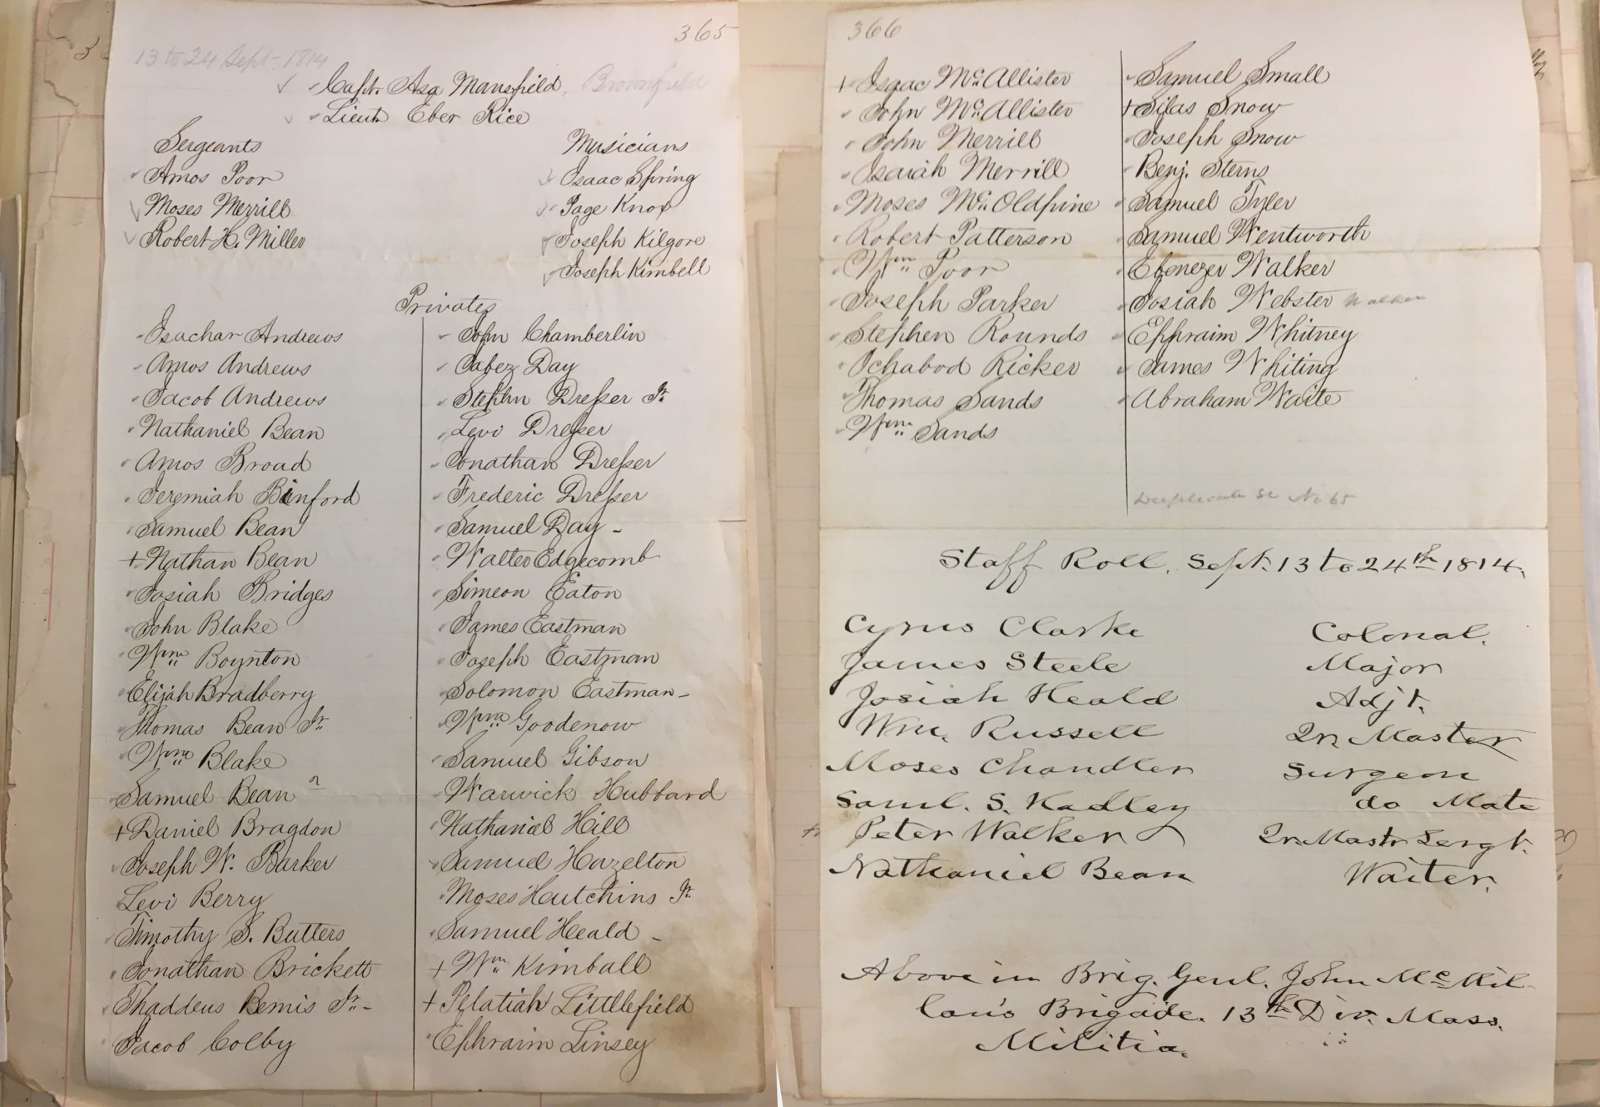 365
13 to 24 Sept. 1814
Capt. Asa Mansfield, Brownfield
Lieut. Eber Rice
Sergeants
Amos Poor
Moses Merrill
Robert H. Miller
Musicians
Isaac Spring
Page Knox
Joseph Kilgore
Joseph Kimbell
Privates
Isachar Andrews
Amos Andrews
Jacob Andrews
Nathaniel Bean
Amos Broad
Jeremiah Binford
Samuel Bean
+ Nathan Bean
Josiah Bridges
John Blake
Wm Boynton
Elijah Bradberry
Thomas Bean Jr.
Wm Blake
Samuel Bean 2
+ Daniel Bragdon
Joseph W. Barker
Levi Berry
Timothy S. Butters
Jonathan Brickett
Thaddeus Bemis Jr. -
Jacob Colby
John Chamberlin
Jabez Day
Stephn Dresser Jr.
Levi Dresser
Jonathan Dresser
Frederic Dresser
Samuel Day -
Walter Edgecomb
Simeon Eaton
James Eastman
Joseph Eastman
Solomon Eastman -
Wm Goodenow
Samuel Gibson
Warwick Hubbard
Nathaniel Hill
Samuel Hazelton
Moses Hutchins Jr.
Samuel Heald -
+ Wm Kimball
+ Pelatiah Littlefield
Ephraim Linsey
366
+ Isaac McAllister
John McAllister
John Merrill
Isaiah Merrill
Moses Mc Oldpine
Robert Patterson
Wm Poor
Joseph Parker
Stephen Rounds
Ichabod Ricker
Thomas Sands
Wm Sands
Samuel Small
+ Silas Snow
Joseph Snow
Benj. Sterns
Samuel Tyler
Samuel Wentworth
Ebenezer Walker
Josiah Webster Walker
Ephraim Whitney
James Whiting
Abraham Waite
No 65
Staff Roll. Sept. 13 to 24th 1814.
Cyrus Clarke Colonal.
James Steele Major
Josiah Heald Adjt.
Wm. Russell Qr. Master
Moses Chandler Surgeon
Saml. S. Hadley do Mate
Peter Walker Qr. Mastr Sergt.
Nathaniel Bean Waiter.
Above in Brig. Genl. John McMil-
lan's Brigade. 13th Div. Mass.
Militia.